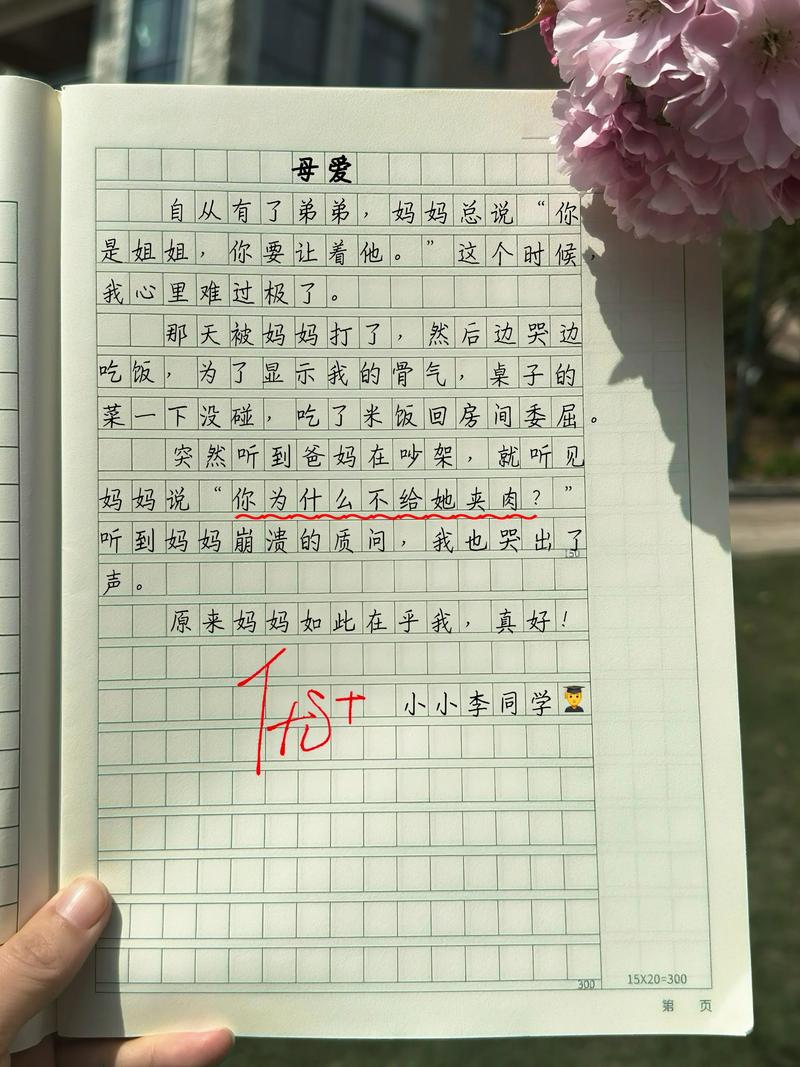 母爱
自从有了弟弟，妈妈总说“你
是姐姐，你要让着他。”这个时候，
我心里难过极了。
那天被妈妈打了，然后边哭边
吃饭，为了显示我的骨气，桌子的
菜一下没碰，吃了米饭回房间委屈。
突然听到爸妈在吵架，就听见
妈妈说“你为什么不给她夹肉？”
听到妈妈崩溃的质问，我也哭出了
150
声。
原来妈妈如此在乎我，真好！
优+
小小李同学
300
15X20=300
第 页